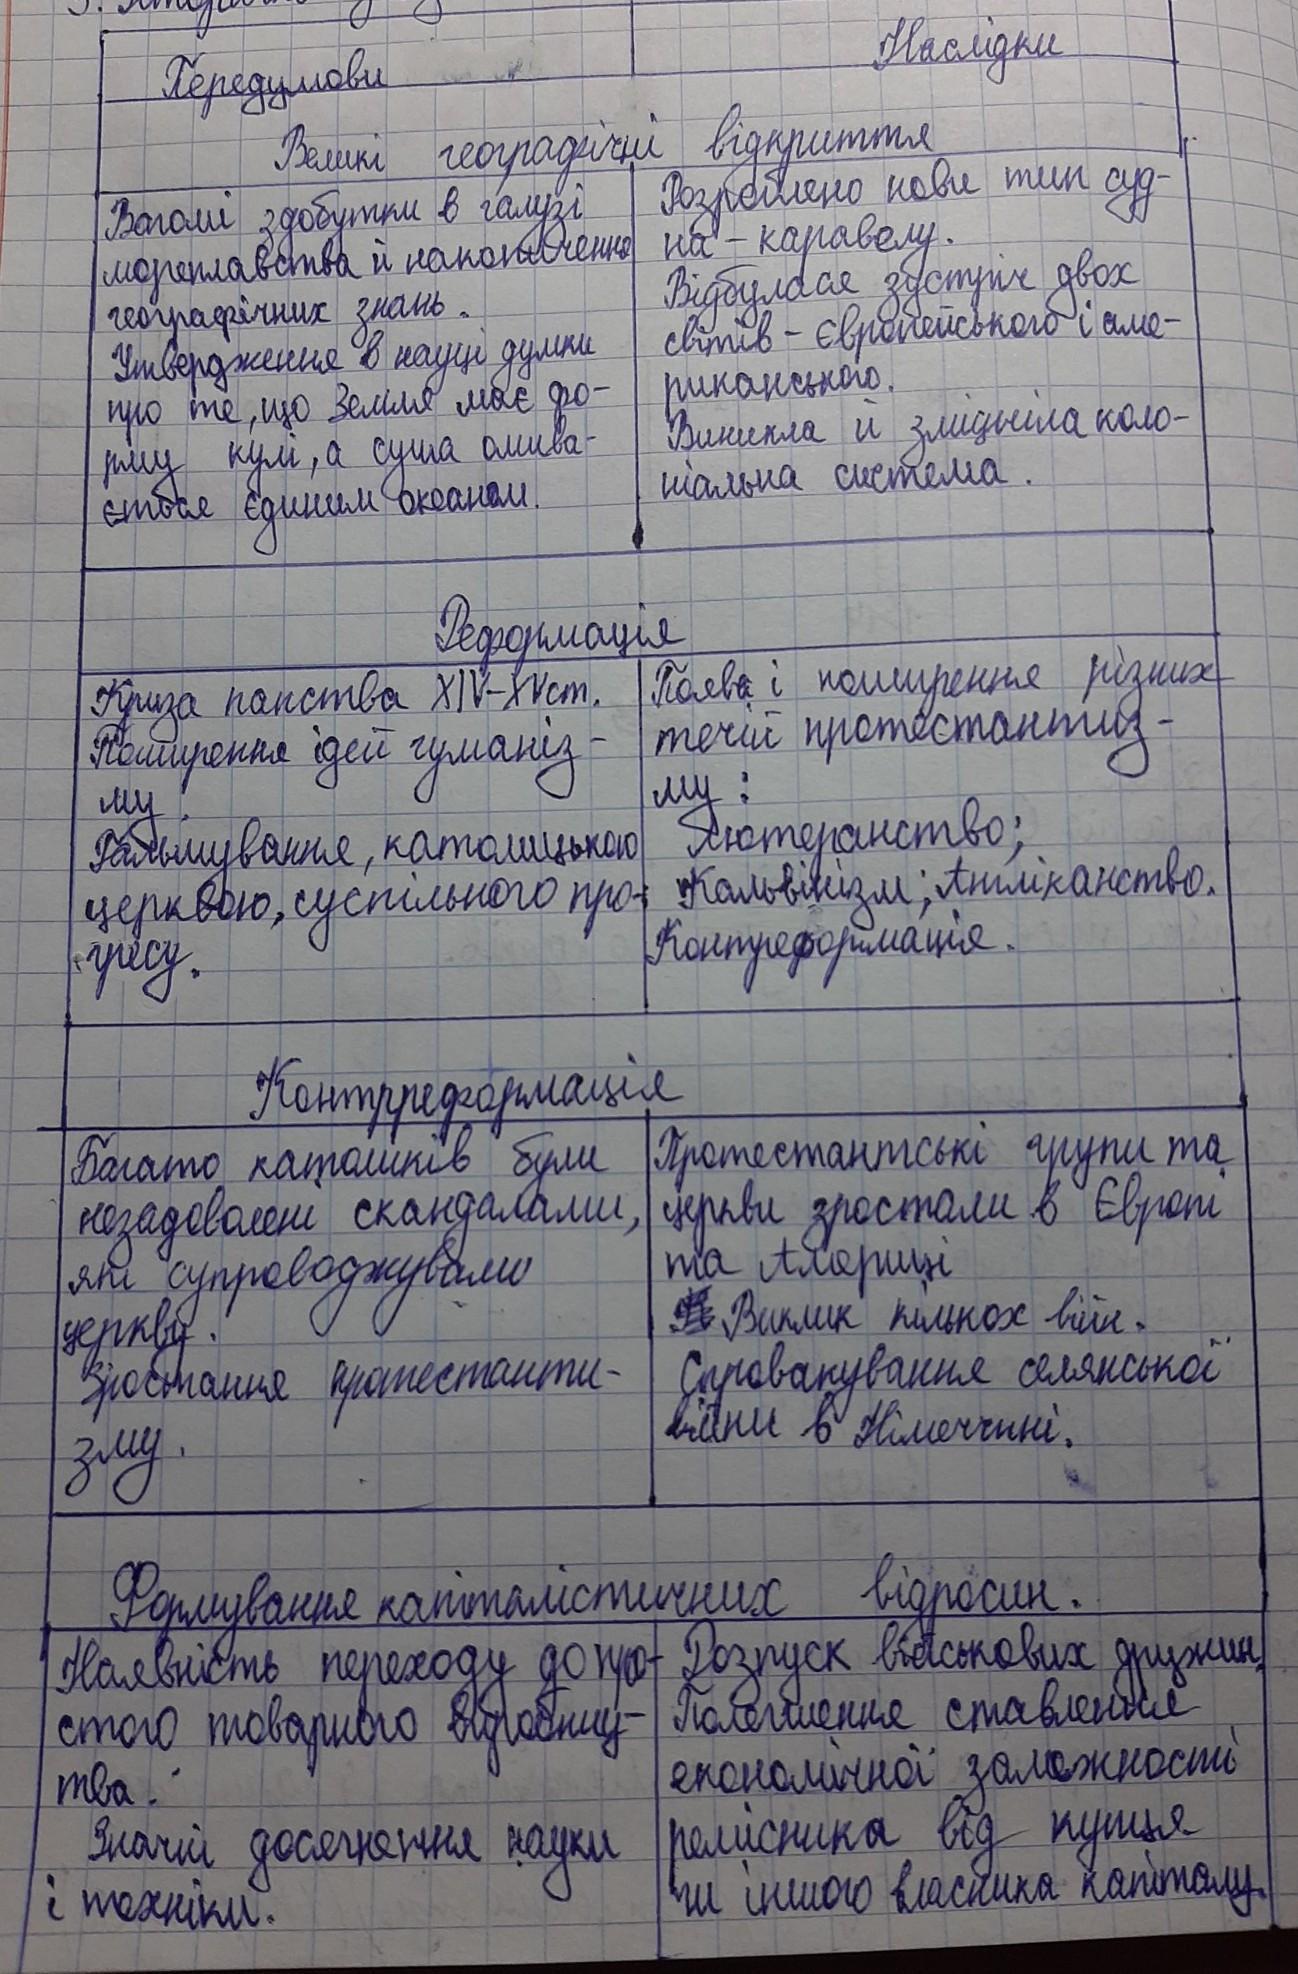 Передумови
Наслідки
Великі географічні відкриття
Вагомі здобутки в галузі
мореплавства й накопичення
географічних знань.
Утвердження в науці думки
про те, що Земля має фо-
рму кулі, а суша омива-
ється єдиним океаном.
Розроблено нови тип суд-
на - каравелу.
Відбулася зустріч двох
світів - європейського і аме-
риканського.
Виникла й зміцніла коло-
ніальна система.
Реформація
Криза папства XIV-XVст.
Поширення ідей гуманіз-
му.
Гальмування, католицькою
церквою, суспільного про-
гресу.
Поява і поширення різних
течій протестантиз-
му:
Лютеранство;
Кальвінізм; Англіканство.
Контреформація.
Контрреформація
Багато католиків були
незадоволені скандалами,
які супроводжували
церкву.
Зростання протестанти-
зму.
Протестантські групи та
церкви зростали в Європі
та Америці
Виклик кількох війн.
Спровакування селянської
війни в Німеччині.
Формування капіталістичних відносин.
Наявність переходу до про-
стого товарного виробниц-
тва.
Значні досягнення науки
і техніки.
Розпуск військових дружин.
Полегшення ставлення
економічної залежності
ремісника від купця
чи іншого власника капіталу.